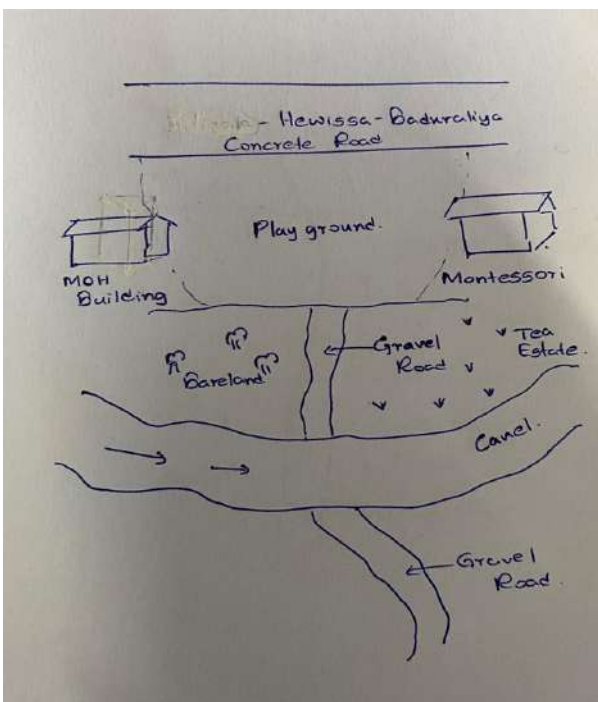 - Hewissa - Baduraliya
Concrete Road
Play ground.
MOH
Building
Montessori
Gravel
Road
Tea
Estate.
Bareland
Canel.
Gravel
Road.